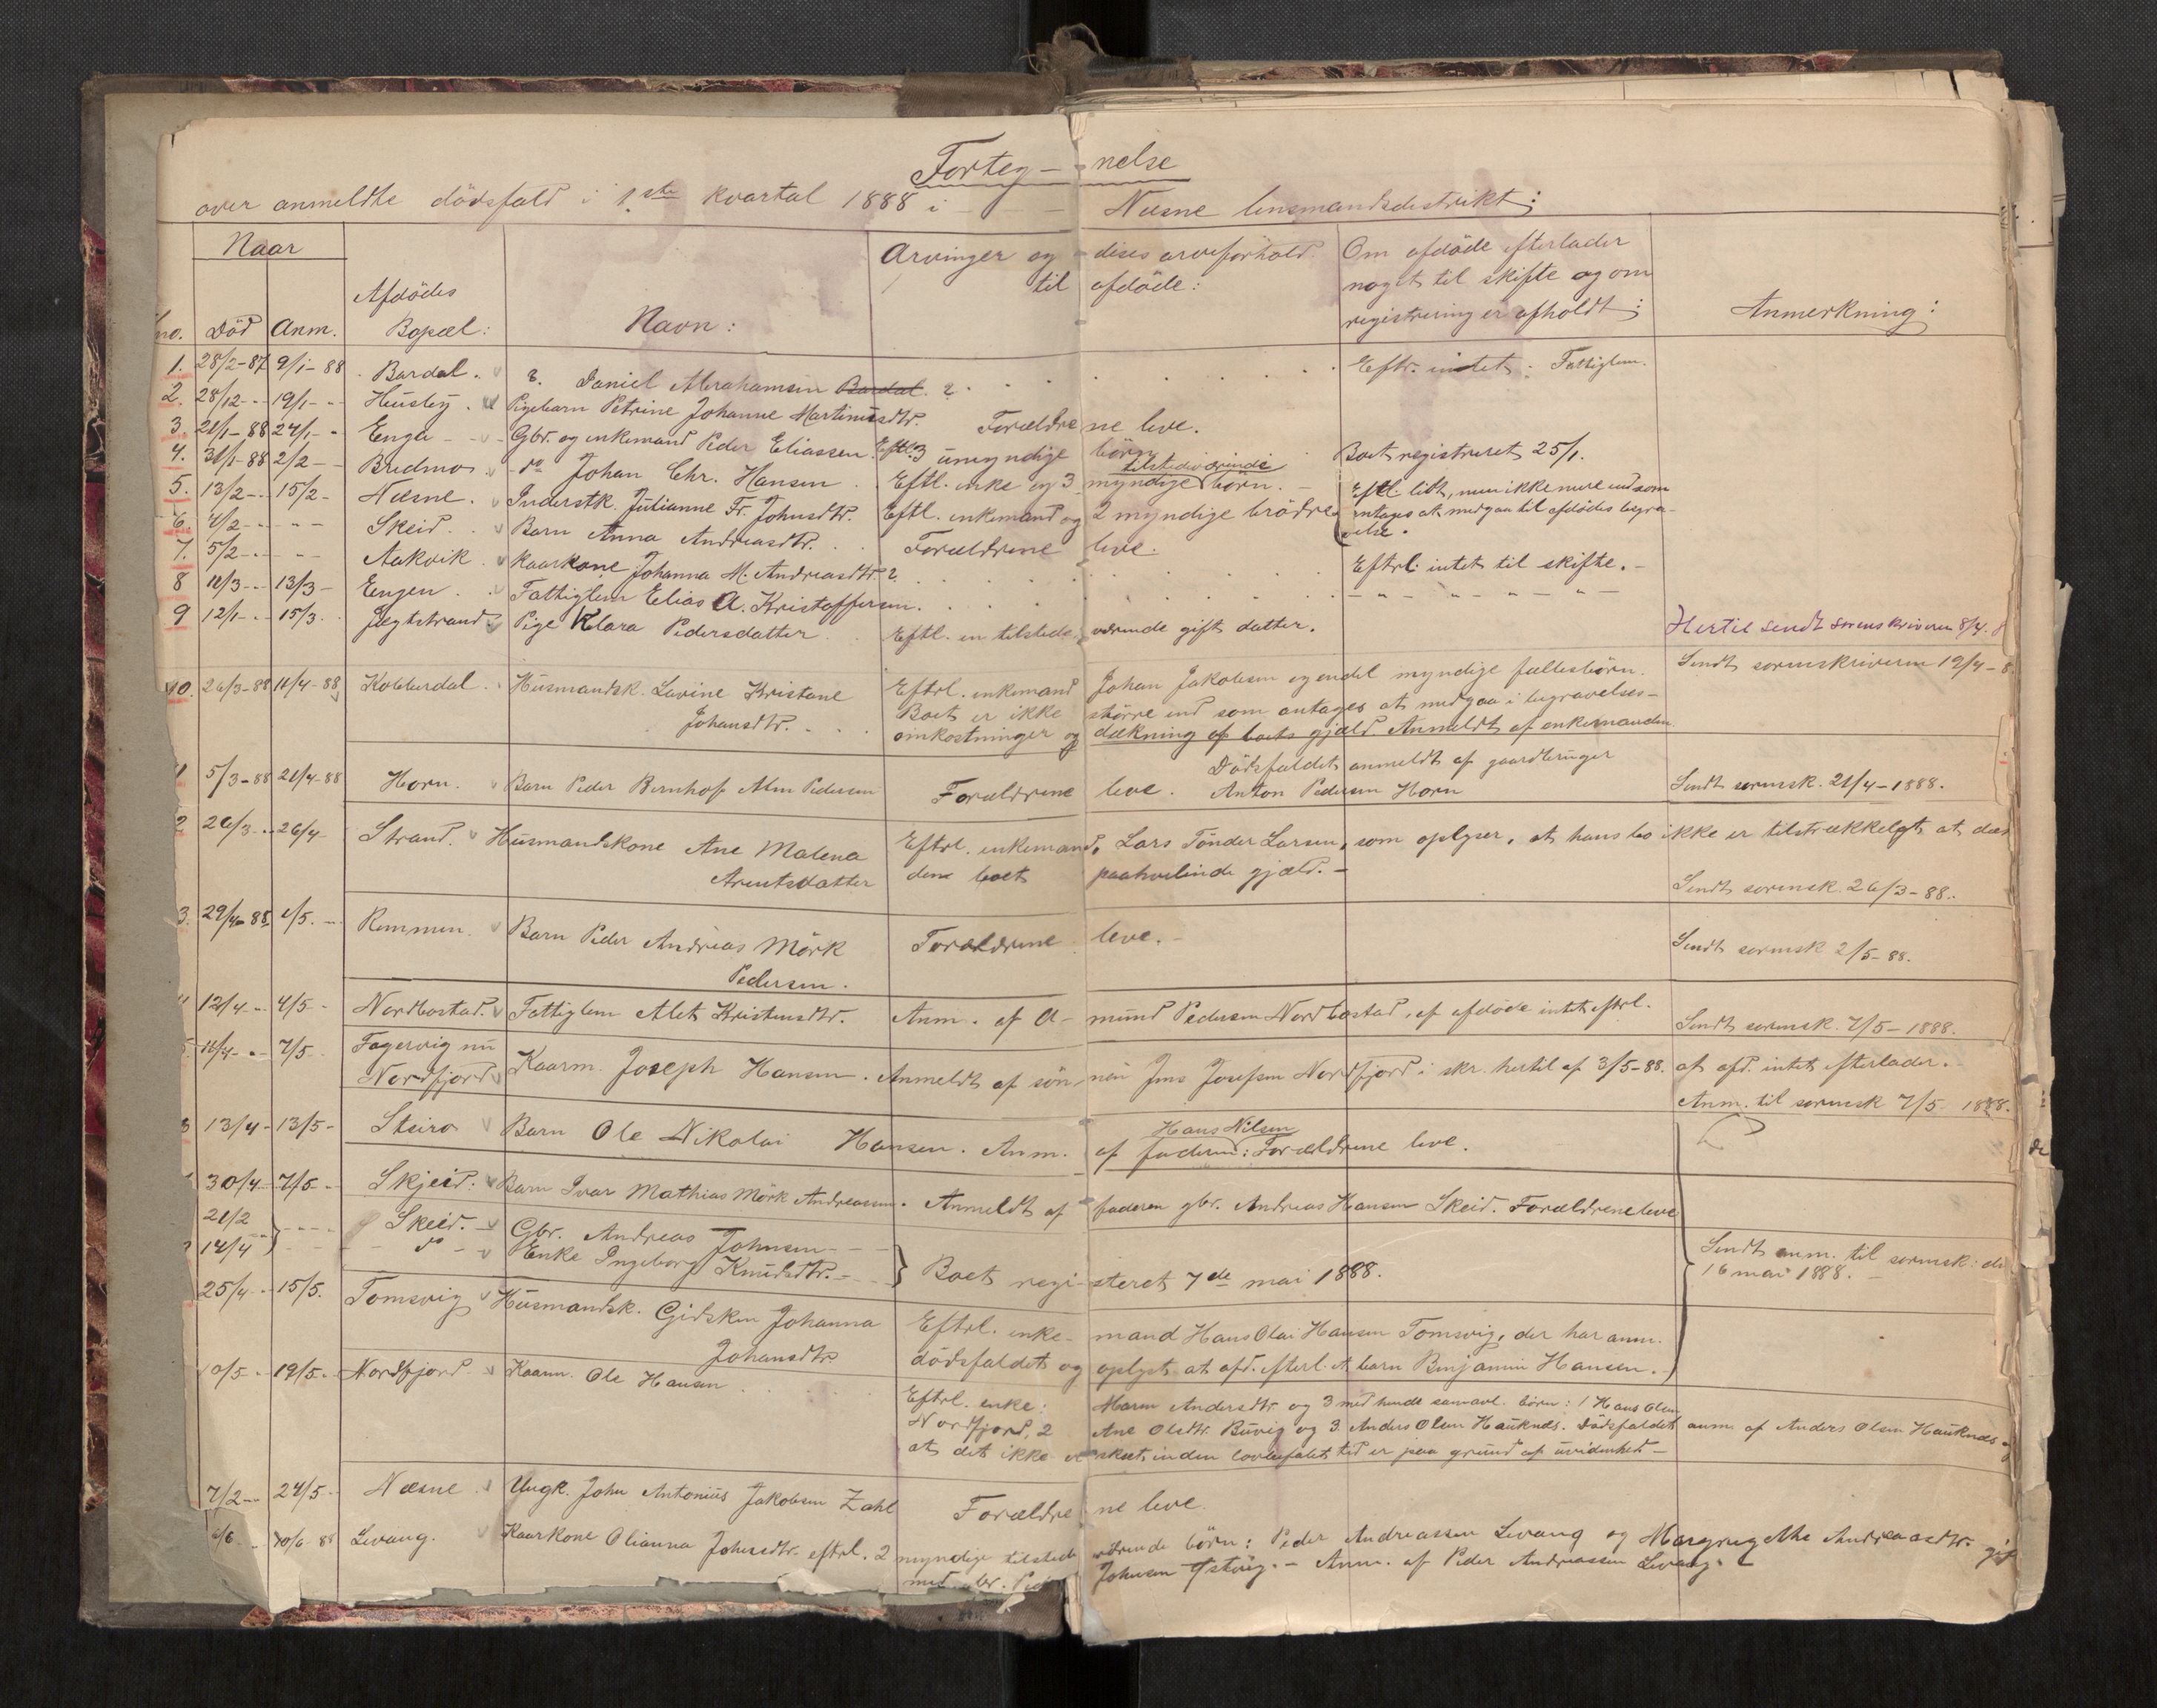 Forteg - nelse
over anmeldte dödsfald i 1ste kvartal 1888 i Næsne lensmandsdistrikt:
Naar
no. Död Anm. Afdödes Bopæl: Navn: Arvinger og disses arveforhold til afdöde: Om afdöde efterlader noget til skifte og om registrering er afholdt: Anmerkning:
1. 28/2-87 9/1-88 Bardal. Daniel Abrahamsen Bardal. Eftr. intet. Fattiglem.
2. 28/12 19/1 Husby. Pigebarn Petrine Johanne Martinusdtr. Forældrene leve.
3. 21/1-88 24/1 Enga Gbr. og enkemand Peder Eliassen. Eftl. 3 umyndige börn Boet registreret 25/1.
4. 31/1-88 2/2 Bredmo do Johan Chr. Hansen. Eftl. enke og 3 tilstedeværende myndige börn.
5. 13/2 15/2 Næsne. Inderstk. Julianne Fr. Johnsdtr. Eftl. enkemand og 2 myndige brödre Eftl. lidt, men ikke mere end som
antages at medgaa til afdödes begra-
velse.
6. 4/2 Skeid. Barn Anna Andreasdtr. Forældrene leve.
7. 5/2 Aakvik. Kaarkone Johanna M. Andreasdtr. Eftrl. intet til skifte.
8 11/3 13/3 Engen. Fattiglem Elias A. Kristoffersen.
9 12/1 15/3 Jægtstrand Pige Klara Pedersdatter. Eftl. en tilstedeværende gift datter. Hertil sendt sorenskriveren 8/4.
10. 26/3-88 11/4-88 Kobberdal. Husmandsk. Lavine Kristane Eftrl. enkemand Johan Jakobsen og endel myndige fællesbörn. Sendt sorenskriveren 12/4-8
Johansdtr. Boet er ikke större end som antages at medgaa i begravelses-
omkostninger og dækning af boets gjæld. Anmeldt af enkemanden
5/3-88 21/4-88 Horn. Barn Peder Bernhof Alm Pedersen Forældrene leve. Dödsfaldet anmeldt af gaardbruger
Anton Pedersen Horn Sendt sorensk. 21/4-1888.
2 26/3 26/4 Strand. Husmandskone Ane Malena Eftrl. enkemand, Lars Tönder Larsen, som oplyser, at hans bo ikke er tilstrækkeligt at dæk
Arentsdatter dene boet paahvilende gjæld. Sendt sorensk. 26/3-88.
3. 29/4-88. 1/5. Remmen. Barn Peder Andreas Mörk Forældrene leve. Sendt sorensk 2/5-88.
Pedersen.
12/4 4/5 Nordbostad. Fattiglem Alet Kristensdtr. Anm. af Amund Pedersen Nordbostad, af afdöde intet eftrl. Sendt sorensk. 7/5-1888.
11/4 7/5 Fagervig nu
Nordfjord Kaarm. Joseph Hansen. Anmeldt af sönnen Jens Josefsen Nordfjord i skr. hertil af 3/5-88. at afd. intet efterlader.
Anm. til sorensk 7/5 1888.
13/4 13/5 Steiro Barn Ole Nikolai Hansen. Anm. af faderen Hans Nilsen: Forældrene leve.
30/4 7/5 Skjeid. Barn Ivar Mathias Mörk Andreassen. Anmeldt af faderen gbr. Andreas Hansen Skeid. Forældrene leve
21/2 Skeid. Gbr. Andreas Johnsen
14/4 do Enke Ingeborg Knudsdtr. Boet registeret 7de mai 1888. Sendt anm. til sorensk. d.
16 mai 1888.
25/4 15/5. Tomsvig Husmandsk. Gidsken Johanna Eftrl. enkemand Hans Olai Hansen Tomsvig, der har anm.
Johansdtr. dödsfaldet og oplyst, at afd. efterl. et barn Benjamin Hansen.
0/5 19/5 Nordfjord. Kaarm. Ole Hansen Eftrl. enke: Maren Andersdtr. og 3 med hende sammavl. börn: 1 Hans Olsen
Nordfjord, 2 Ane Olsdtr. Buvig og 3. Anders Olsen Hauknes. Dödsfaldet anm. af Anders Olsen Hauknes og
at det ikke er skeet inden lovbefalet tid er paa grund af uvidenhed
7/2 24/5 Næsne. Ungk. John Antonius Jakobsen Zahl Forældrene leve.
6/6 10/6-88 Levang. Kaarkone Olianna Johnsdtr. eftrl. 2 myndige tilstedeværende börn: Peder Andreassen Levang og Margrugethe Andreasdtr. gift
med gbr. Ped Johnsen Ystvig. - Anm. af Peder Andreassen Levang.